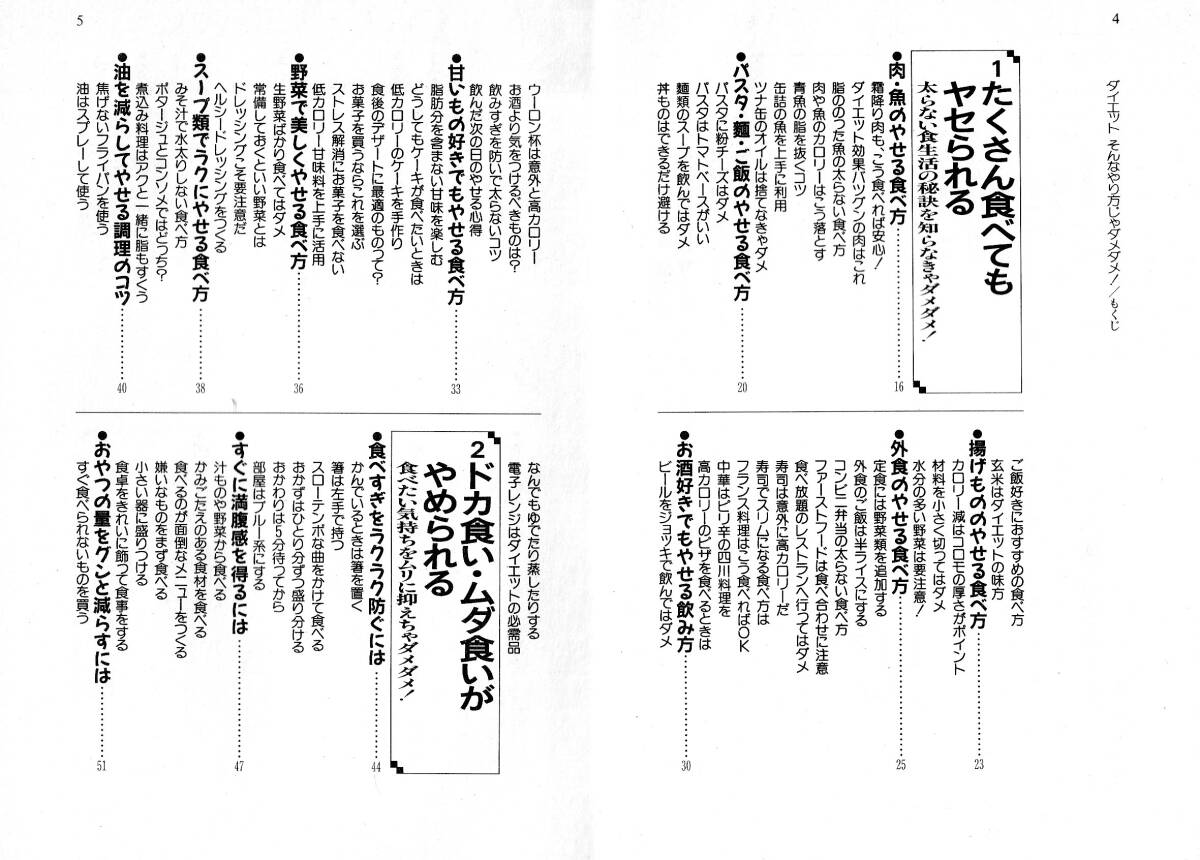 4
ダイエット そんなやり方じゃダメダメ!/もくじ
1 たくさん食べても
ヤセられる
太らない食生活の秘訣を知らなきゃダメダメ!
●肉・魚のやせる食べ方…………16
霜降り肉も、こう食べれば安心!
ダイエット効果バツグンの肉はこれ
脂ののった魚の太らない食べ方
肉や魚のカロリーはこう落とす
青魚の脂を抜くコツ
缶詰の魚を上手に利用
ツナ缶のオイルは捨てなきゃダメ
●パスタ・麺・ご飯のやせる食べ方…………20
パスタに粉チーズはダメ
パスタはトマトベースがいい
麺類のスープを飲んではダメ
丼ものはできるだけ避ける
ご飯好きにおすすめの食べ方
玄米はダイエットの味方
●揚げもののやせる食べ方…………23
カロリー減はコロモの厚さがポイント
材料を小さく切ってはダメ
水分の多い野菜は要注意!
●外食のやせる食べ方…………25
定食には野菜類を追加する
外食のご飯は半ライスにする
コンビニ弁当の太らない食べ方
ファーストフードは食べ合わせに注意
食べ放題のレストランへ行ってはダメ
寿司は意外に高カロリーだ
寿司でスリムになる食べ方は
フランス料理はこう食べればOK
中華はピリ辛の四川料理を
高カロリーのピザを食べるときは
●お酒好きでもやせる飲み方…………30
ビールをジョッキで飲んではダメ
5
ウーロン杯は意外と高カロリー
お酒より気をつけるべきものは?
飲みすぎを防いで太らないコツ
飲んだ次の日のやせる心得
●甘いもの好きでもやせる食べ方…………33
脂肪分を含まない甘味を楽しむ
どうしてもケーキが食べたいときは
低カロリーのケーキを手作り
食後のデザートに最適のものって?
お菓子を買うならこれを選ぶ
ストレス解消にお菓子を食べない
低カロリー甘味料を上手に活用
●野菜で美しくやせる食べ方…………36
生野菜ばかり食べてはダメ
常備しておくといい野菜とは
ドレッシングこそ要注意だ
ヘルシードレッシングをつくる
●スープ類でラクにやせる食べ方…………38
みそ汁で水太りしない食べ方
ポタージュとコンソメではどっち?
煮込み料理はアクと一緒に脂もすくう
●油を減らしてやせる調理のコツ…………40
焦げないフライパンを使う
油はスプレーして使う
なんでもゆでたり蒸したりする
電子レンジはダイエットの必需品
2 ドカ食い・ムダ食いが
やめられる
食べたい気持ちをムリに抑えちゃダメダメ!
●食べすぎをラクラク防ぐには…………44
かんでいるときは箸を置く
箸は左手で持つ
スローテンポな曲をかけて食べる
おかずはひとり分ずつ盛り分ける
おかわりは5分待ってから
部屋はブルー系にする
●すぐに満腹感を得るには…………47
汁ものや野菜から食べる
かみごたえのある食材を食べる
食べるのが面倒なメニューをつくる
嫌いなものをまず食べる
小さい器に盛りつける
食卓をきれいに飾って食事をする
●おやつの量をグンと減らすには…………51
すぐ食べられないものを買う